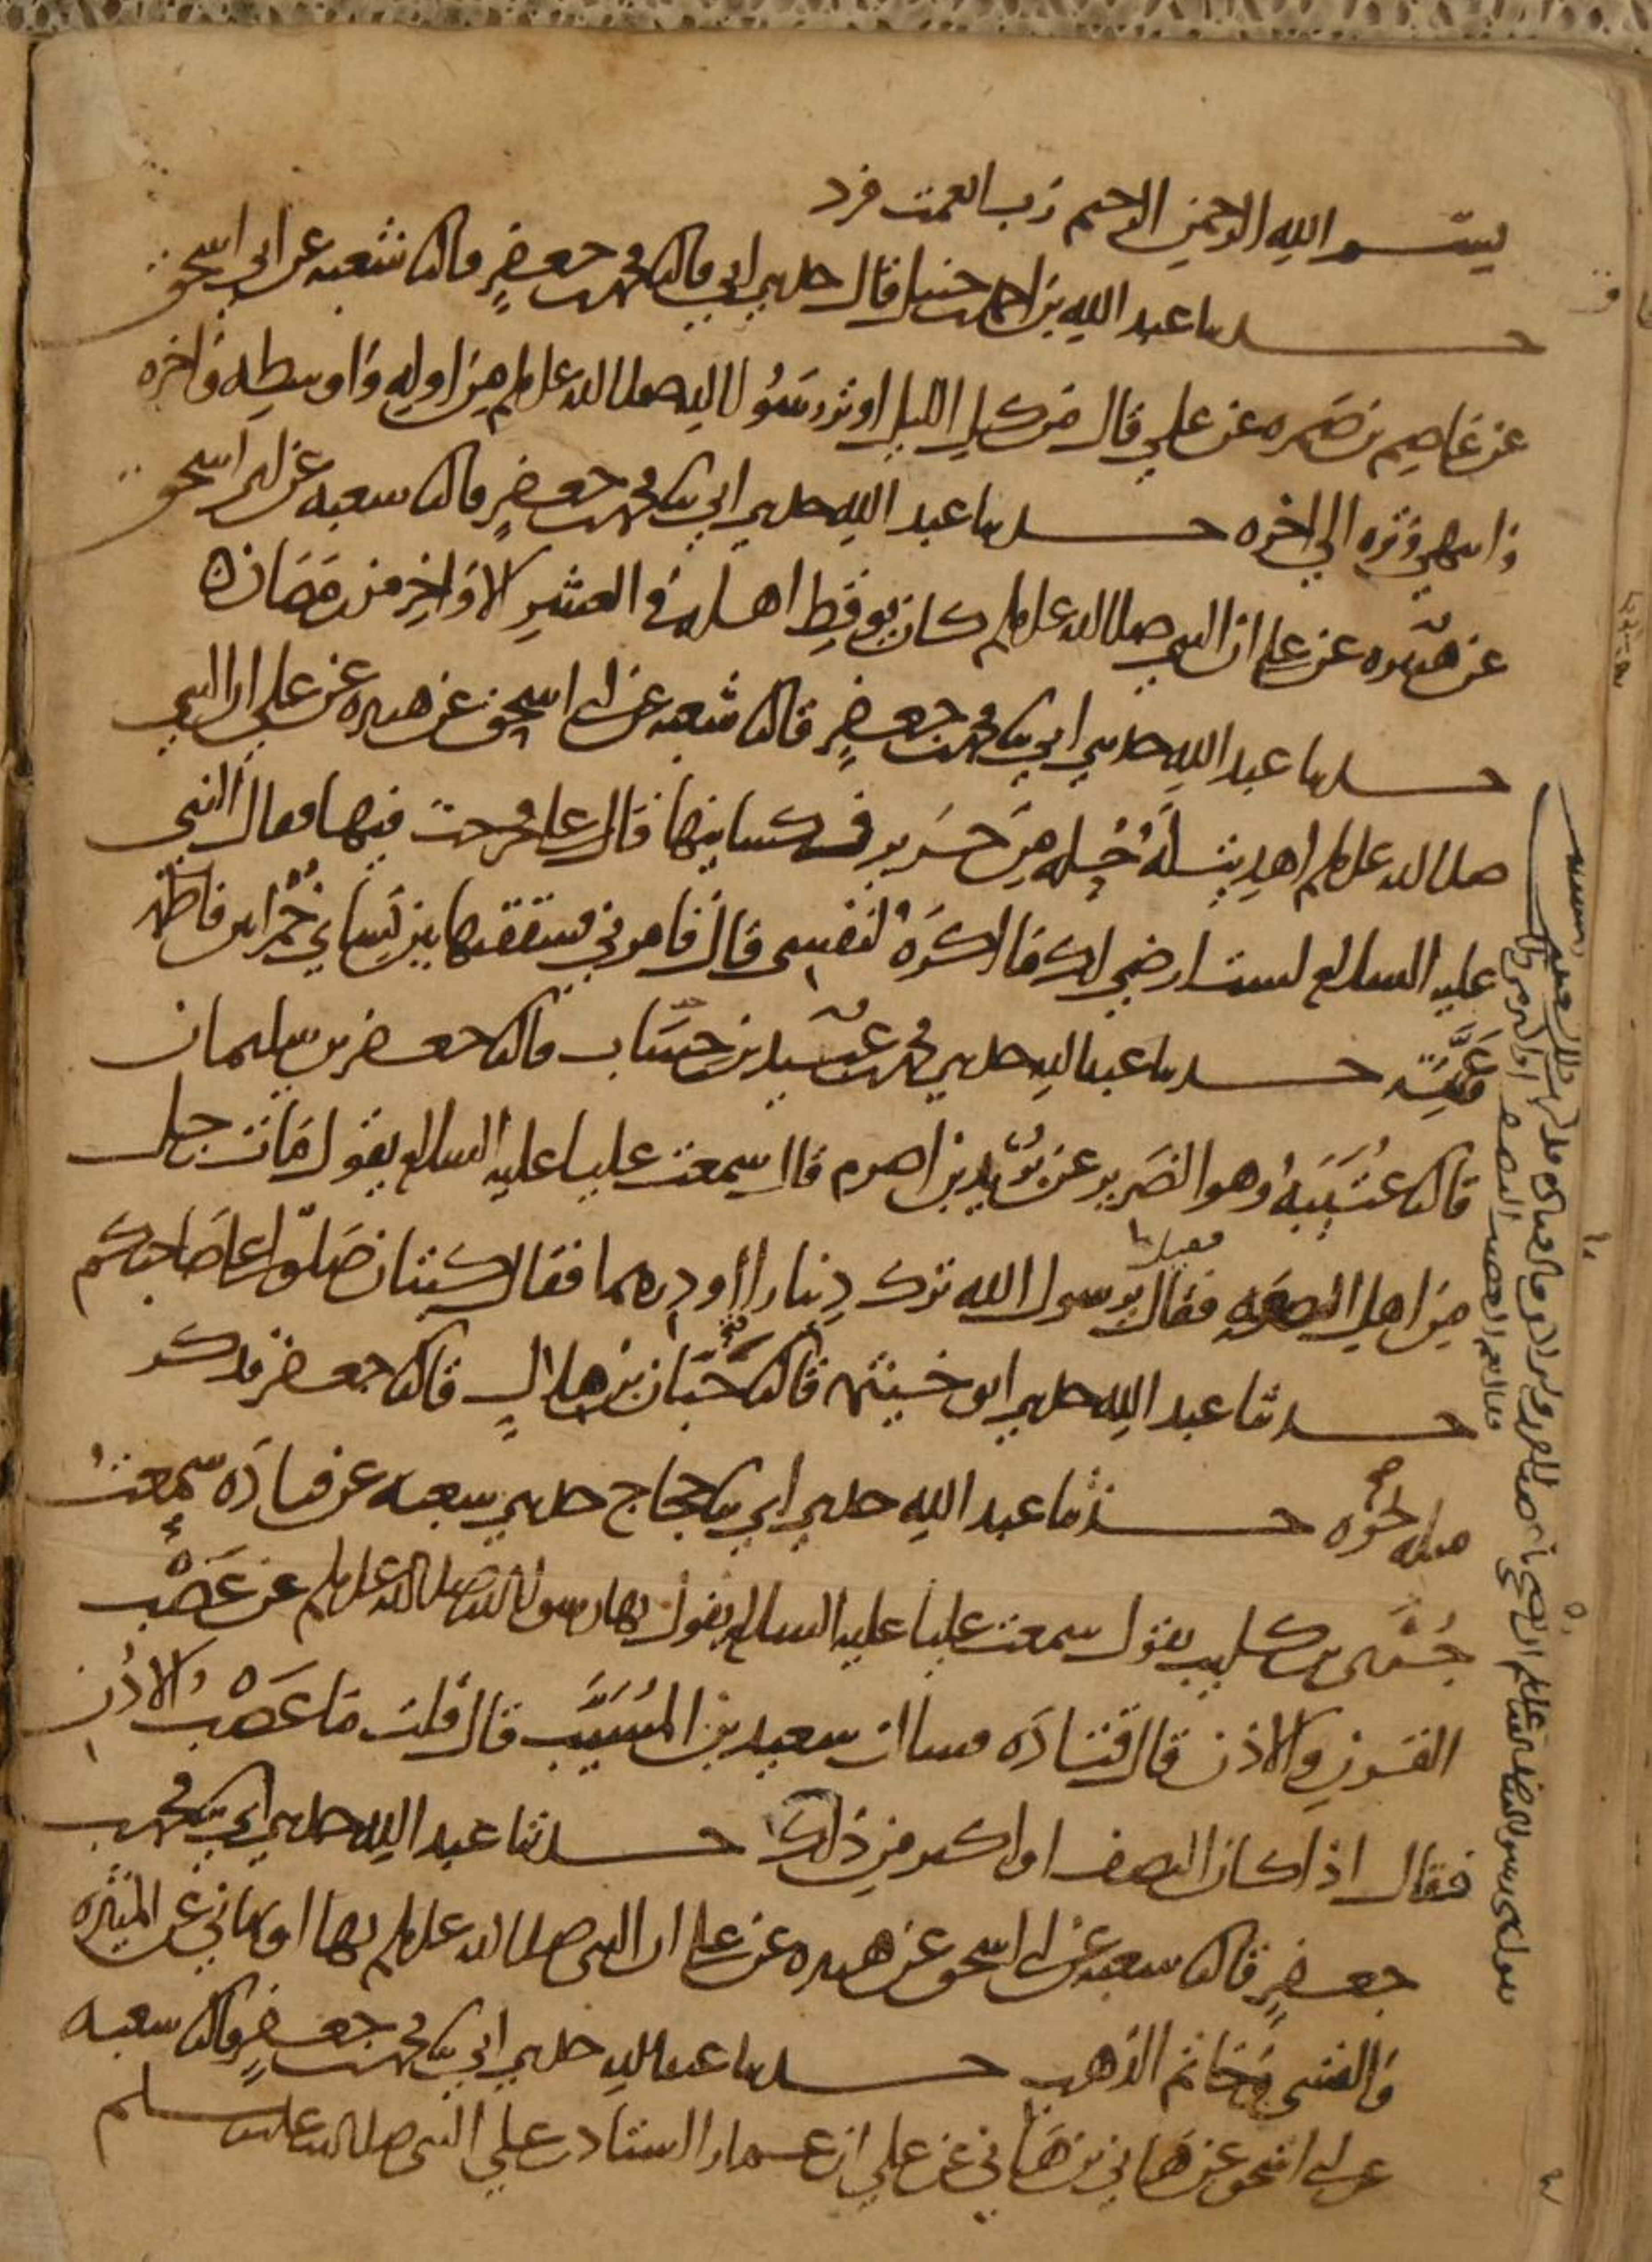 بسم الله الرحمن الرحيم رب انعمت فزد
حدثنا عبد الله بن احمد بن حنبل قال حدثني ابي قال ثنا محمد بن جعفر قال ثنا شعبه عن ابي اسحق
عن عاصم بن ضمره عن علي قال من كل الليل اوتر رسول الله صلى الله عليه وسلم من اوله واوسطه واخره
وانتهى وتره الى اخره حدثنا عبد الله حدثني ابي ثنا محمد بن جعفر قال ثنا شعبه عن ابي اسحق
عن هبيره عن علي ان النبي صلى الله عليه وسلم كان يوقظ اهله في العشر الاواخر من رمضان
حدثنا عبد الله حدثني ابي ثنا محمد بن جعفر قال ثنا شعبه عن ابي اسحق عن هبيره عن علي ان النبي
صلى الله عليه وسلم اهديت له حله من حرير فكسانيها قال علي فخرجت فيها فقال النبي
عليه السلام لست ارضى لك ما اكره لنفسي قال فامرني فشققتها بين نسائي خمرا بين فاطمة
وعمته حدثنا عبد الله حدثني محمد بن عبيد بن حساب قال ثنا جعفر بن سليمان
قال ثنا عتيبه وهو الضرير عن بريد بن اصرم قال سمعت عليا عليه السلام يقول مات رجل
من اهل الصفه فقيل يرسول الله ترك دينارا او درهما فقال كيتان صلوا على صاحبكم
حدثنا عبد الله حدثني ابو خيثمه قال ثنا حبان بن هلال قال ثنا جعفر فذكر
مثله نحوه حدثنا عبد الله حدثني ابي ثنا حجاج حدثني شعبه عن قتاده سمعت
جري بن كليب يقول سمعت عليا عليه السلام يقول نهى رسول الله صلى الله عليه وسلم عن عضب
القرن والاذن قال قتاده فسالت سعيد بن المسيب قال قلت ما عضب الاذن
فقال اذا كان النصف او اكثر من ذلك حدثنا عبد الله حدثني ابي ثنا محمد بن
جعفر قال ثنا شعبه عن ابي اسحق عن هبيره عن علي ان النبي صلى الله عليه وسلم نهى او نهاني عن الميثره
والقسي وخاتم الذهب حدثنا عبد الله حدثني ابي ثنا محمد بن جعفر قال ثنا شعبه
عن ابي اسحق عن هاني بن هاني عن علي ان عمارا استاذن على النبي صلى الله عليه وسلم